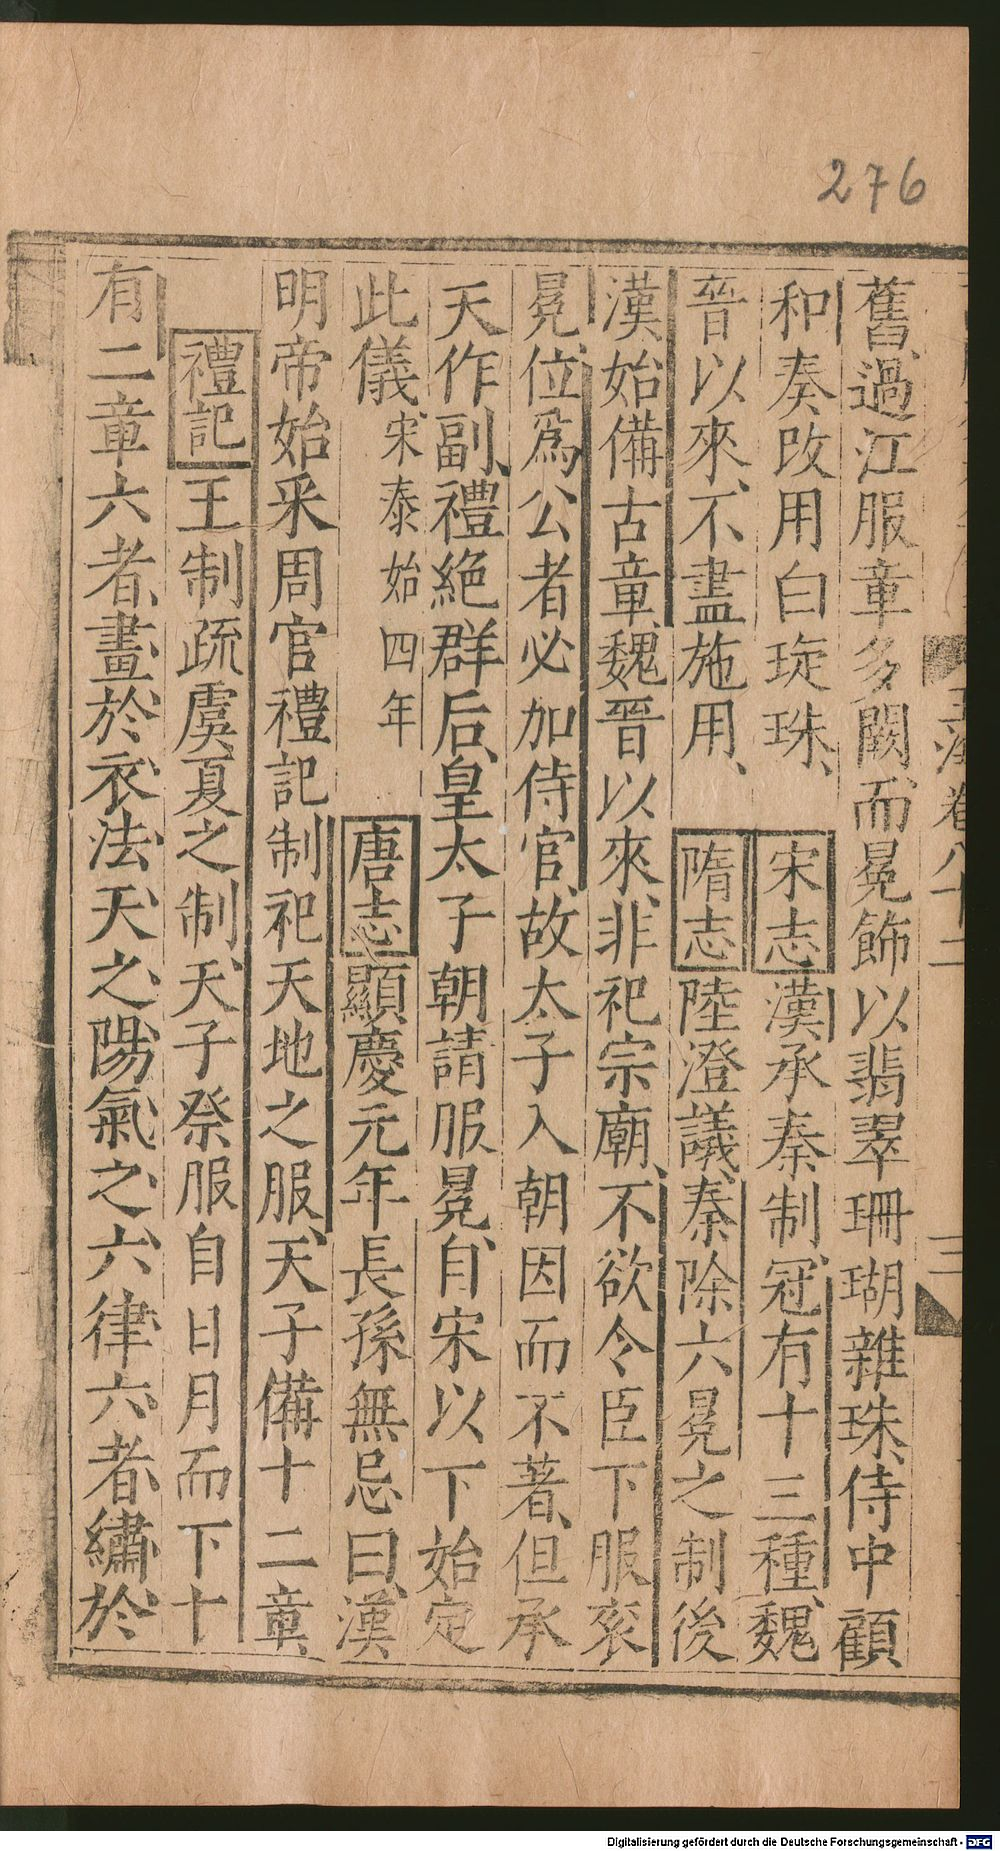 276
舊、過江服章多闕、而冕飾以翡翠珊瑚雜珠、侍中顧
和奏改用白琁珠、宋志漢承秦制、冠有十三種、魏
晉以來、不盡施用、隋志陸澄議、秦除六冕之制後
漢始備古章、魏晉以來、非祀宗廟、不欲令臣下服衮
冕、位爲公者必加侍官、故太子入朝因而不著、但承
天作副、禮絶群后、皇太子朝請服冕、自宋以下始定
此儀、宋泰始四年唐志顯慶元年長孫無忌曰、漢
明帝始采周官禮記制祀天地之服、天子備十二章、
禮記王制疏虞夏之制、天子祭服自日月而下十
有二章六者、畫於衣、法天之陽氣之六律六者、繡於
玉海卷八十二
三
Digitalisierung gefördert durch die Deutsche Forschungsgemeinschaft - DFG